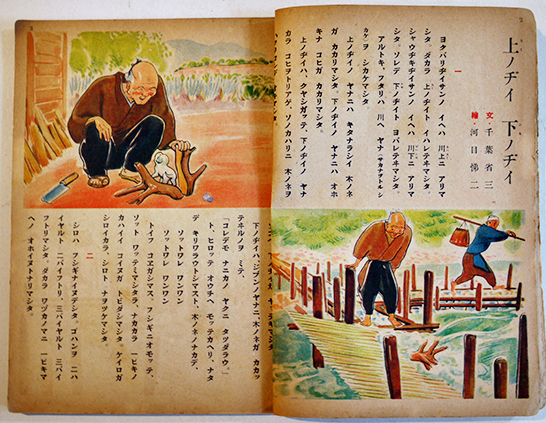 上ノヂイ 下ノヂイ
文・千葉省三
繪・河目悌二
一
ヨクバリヂイサンノ イヘハ 川上ニ アリマ
シタ。ダカラ 上ノヂイト イハレテヰマシタ。
シャウヂキヂイサンノ イヘハ 川下ニ アリマ
シタ。ソレデ 下ノヂイト ヨバレテヰマシタ。
アルトキ、フタリハ 川ヘ ヤナ(サカナヲトルシ
カケ)ヲ シカケマシタ。
上ノヂイノ ヤナニハ キタナラシイ 木ノネ
ガ カカリマシタ。下ノヂイノ ヤナニハ オホ
キナ コヒガ カカリマシタ。
上ノヂイハ、クヤシガッテ、下ノヂイノ ヤナ
カラ コヒヲトリアゲ、ソノカハリニ 木ノネヲ
下ノヂイハ、ジブンノヤナニ、木ノネガ カカッ
テヰルノヲ ミテ、
「コレデモ ナニカノ ヤクニ タツダラウ。」
ト、ヒロッテ オウチヘ モッテカヘリ、ナタ
デ キリワラウトシマスト、木ノネノナカデ、
ソットワレ ワンワン
ソットワレ ワンワン
トイフ コヱガシマス。フシギニオモッテ、
ソット ワッテミマシタラ、ナカカラ 一ピキノ
カハイイ コイヌガ トビダシマシタ。ケイロガ
シロイカラ、シロト ナヲツケマシタ。
二
シロハ フシギナイヌデシタ。ゴハンヲ 二ハ
イヤルト 二バイフトリ、三バイヤルト 三バイ
フトリマシタ。ダカラ ワヅカノマニ 一ピキマ
ヘノ オホイヌトナリマシタ。